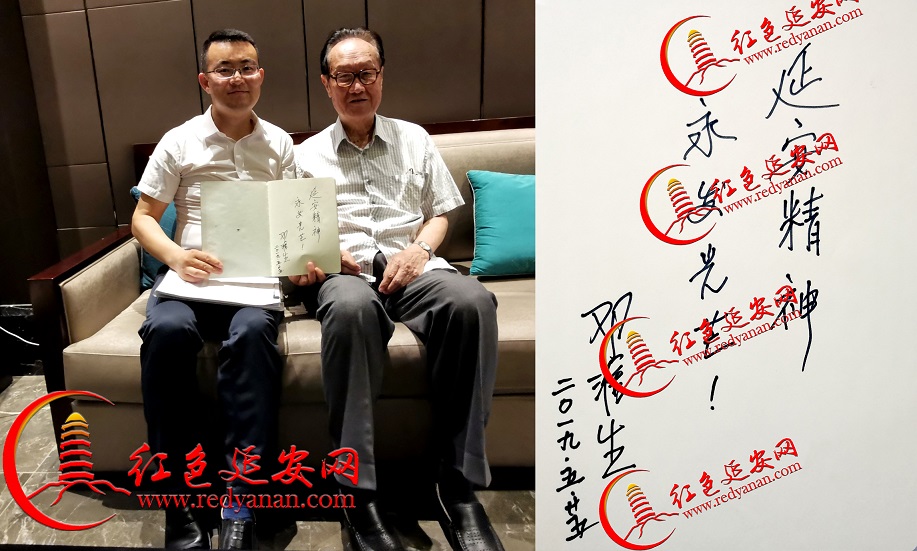 延安精神
永发光芒！
红色延安网
www.redyanan.com
延安精神
永发光芒！
二〇一九·五·廿五
红色延安网
www.redyanan.com
红色延安网
www.redyanan.com
红色延安网
www.redyanan.com
红色延安网
www.redyanan.com